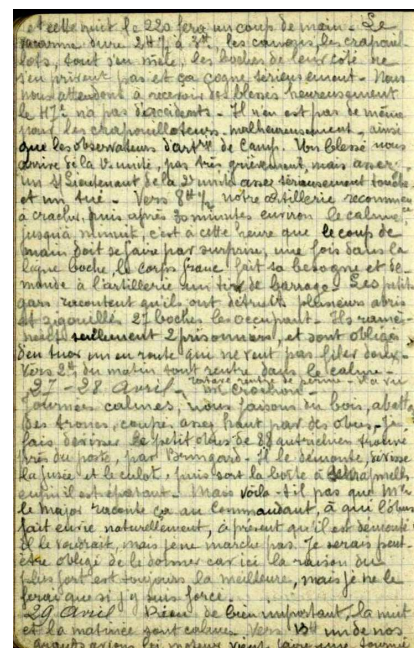 et cette nuit le 220 fera un coup de main - Le
vacarme dure 2H½ à 3H, les canons, les crapouil
lots, tout s'en mêle, les boches de leur côté ne
s'en privent pas et ça cogne sérieusement - Nous
nous attendons à recevoir des blessés heureusement
le 47e n'a pas d'accidents - Il n'en est pas de même
pour les crapouilloteurs - malheureusement - ainsi
que les observateurs d'artie de Camp. Un blessé nous
arrive de la unité, pas très grièvement, mais assez -
un S/Lieutenant de la 2e unité assez sérieusement touché
et un tué - Vers 8H½ notre artillerie recommence
à cracher, puis après 30 minutes environ le calme
jusqu'à minuit, c'est à cette heure que le coup de
main doit se faire par surprise, une fois dans la
ligne boche, le corps franc fait sa besogne et de-
mande à l'artillerie un tir de barrage - Les petits
gars racontent qu'ils ont détruit plusieurs abris
et zigouillés 27 boches les occupant - Ils ramè-
nent seulement 2 prisonniers, et sont obligés
d'en tuer un en route qui ne veut pas filer doux -
Vers 2H du matin tout rentre dans le calme -
27 - 28 Avril - rentre de perme -
Journées calmes, nous faisons du bois, abatt
des troncs, coupés assez haut par des obus, je
fais dévisser le petit obus de 88 autrichien trouvé
près du poste, par Bonngard - Il le démonte, dévisse
la fusée et le culot, puis sort la boîte à shrapnells
enfin il est épatant - Mais voilà - t-il pas que Mr
le Major raconte ça au Commandant, à qui l'obus
fait envie naturellement, à présent qu'il est démonté
il le voudrait, mais je ne marche pas. Je serais peut
être obligé de le donner car ici la raison du
plus fort est toujours la meilleure, mais je ne le
ferai que si j'y suis forcé.
29 Avril Rien de bien important, la nuit
et la matinée sont calmes. Vers 13H un de nos